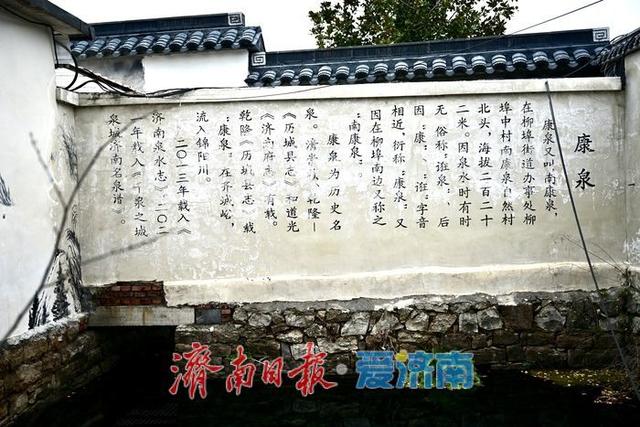 康泉
康泉又叫南康泉，
在柳埠街道办事处柳
埠中村南康泉自然村
北头，海拔二百二十
二米。因泉水时有时
无，俗称：诳泉：，后
因：、：诳：字音
相近，衍称：康泉：又
因在柳埠南边又称之
：南康泉：。
康泉为历史名
泉。清
乾隆
《历城县志》和道光
《济南府志》有载。
乾隆《历城县志》载
：康泉：在齐城峪，
流入锦阳川。
二〇一三年载入《
济南泉水志》二〇二
一年载入《千泉之城
泉城济南名泉谱》。
济南日报·爱济南